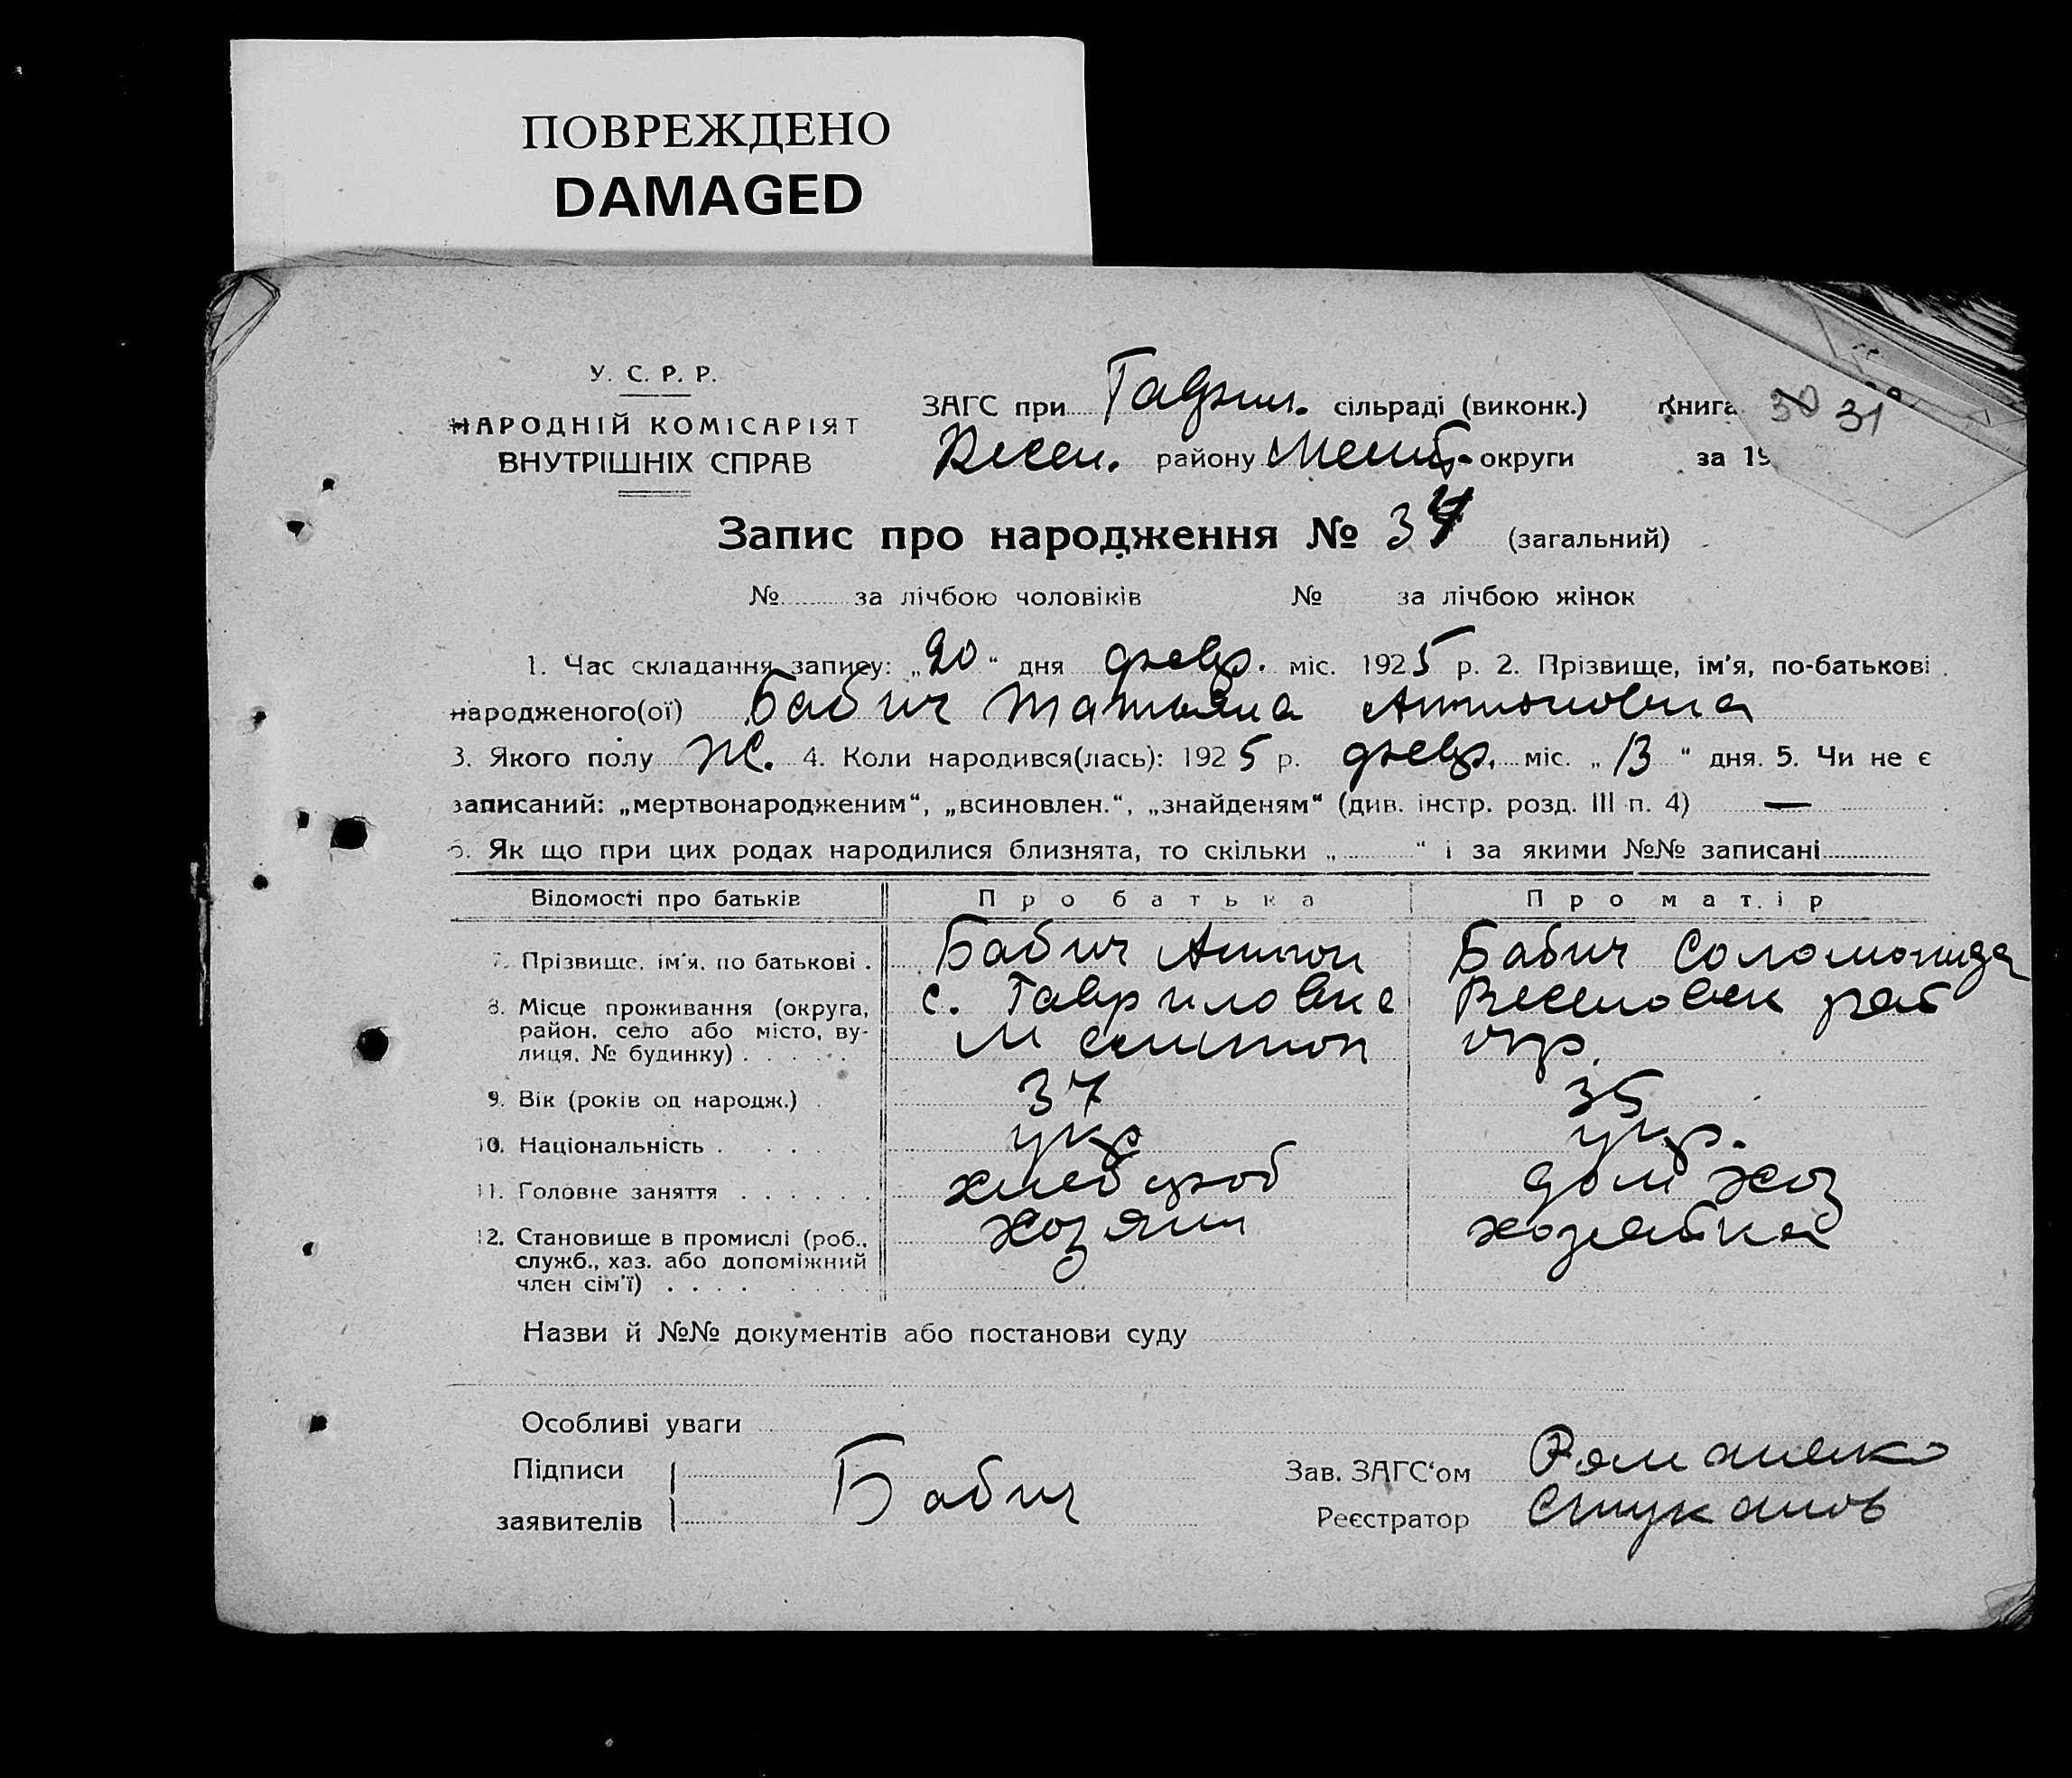 ПОВРЕЖДЕНО
DAMAGED
У. С. Р. Р.
НАРОДНІЙ КОМІСАРІЯТ
ВНУТРІШНІХ СПРАВ
ЗАГС при сільраді (виконк.) Книга 30 31
Весел. району Мелит. округи за 19
Запис про народження № 34 (загальний)
№ за лічбою чоловіків № за лічбою жінок
1. Час складання запису: „20“ дня февр. міс. 1925 р. 2. Прізвище, ім'я, по-батькові
народженого(ої) Бабич Татьяна Антоновна
3. Якого полу Ж. 4. Коли народився(лась): 1925 р. февр. міс. „13“ дня. 5. Чи не є
записаний: „мертвонародженим“, „всиновлен.“, „знайденям“ (див. інстр. розд. III п. 4) —
6. Як що при цих родах народилися близнята, то скільки „ “ і за якими №№ записані
Відомості про батьків Про батька Про матір
7. Прізвище, ім'я, по батькові . Бабич Антон Бабич Соломонида
8. Місце проживання (округа, район, село або місто, вулиця, № будинку) с. Гавриловке Веселовск раё
Мелитоп окр.
9. Вік (років од народж.) 37 35
10. Національність . укр укр.
11. Головне заняття хлебороб дом хоз
12. Становище в промислі (роб., служб., хаз. або допоміжний член сім'ї) хозяин хозяйка
Назви й №№ документів або постанови суду
Особливі уваги
Підписи заявителів Бабич
Зав. ЗАГС'ом Романенко
Реєстратор Стуканов